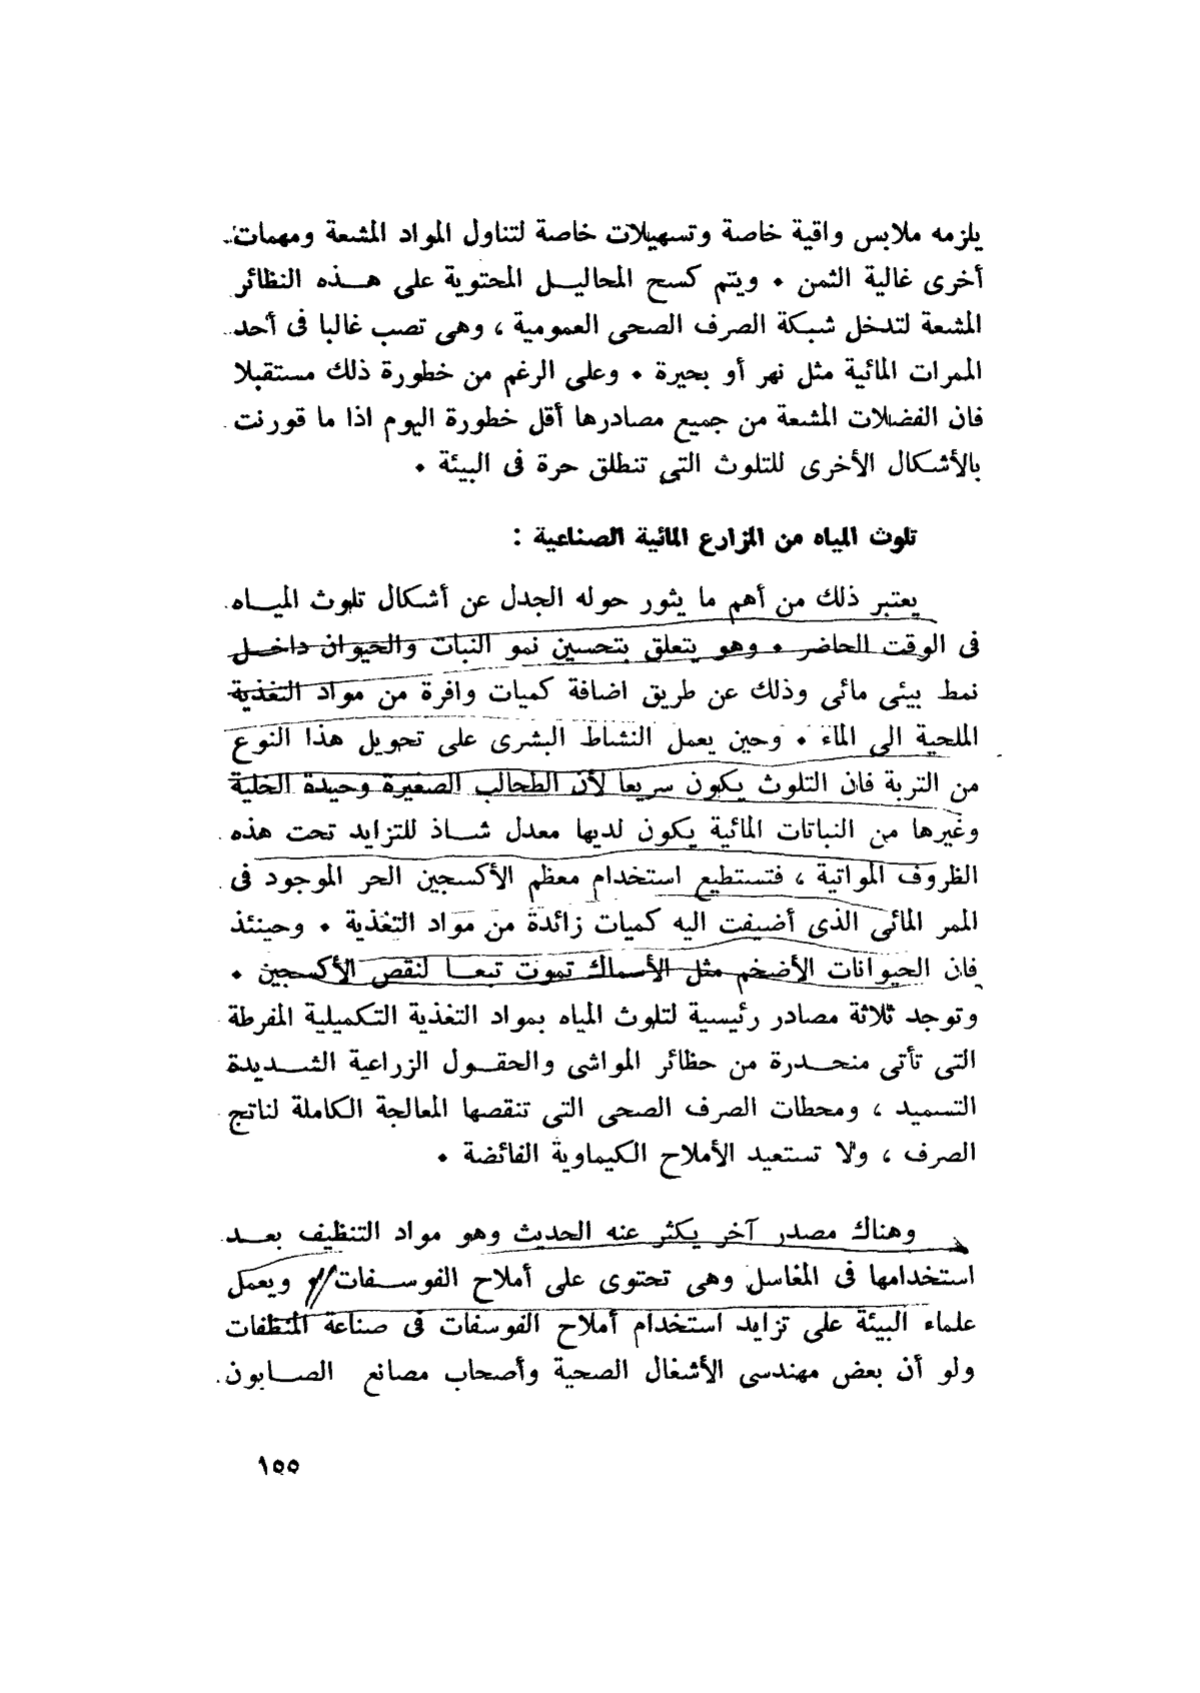 يلزمه ملابس واقية خاصة وتسهيلات خاصة لتناول المواد المشعة ومهمات
أخرى غالية الثمن • ويتم كسح المحاليـــل المحتوية على هـــذه النظائر
المشعة لتدخل شبكة الصرف الصحى العمومية ، وهى تصب غالبا فى أحد
الممرات المائية مثل نهر أو بحيرة • وعلى الرغم من خطورة ذلك مستقبلا
فان الفضلات المشعة من جميع مصادرها أقل خطورة اليوم اذا ما قورنت
بالأشكال الأخرى للتلوث التى تنطلق حرة فى البيئة •
تلوث المياه من المزارع المائية الصناعية :
يعتبر ذلك من أهم ما يثور حوله الجدل عن أشكال تلوث الميـــاه
فى الوقت الحاضر • وهو يتعلق بتحسين نمو النبات والحيوان داخـــل
نمط بيئى مائى وذلك عن طريق اضافة كميات وافرة من مواد التغذية
الملحية الى الماء • وحين يعمل النشاط البشرى على تحويل هذا النوع
من التربة فان التلوث يكون سريعا لأن الطحالب الصغيرة وحيدة الخلية
وغيرها من النباتات المائية يكون لديها معدل شـــاذ للتزايد تحت هذه
الظروف المواتية ، فتستطيع استخدام معظم الأكسجين الحر الموجود فى
الممر المائى الذى أضيفت اليه كميات زائدة من مواد التغذية • وحينئذ
فان الحيوانات الأضخم مثل الأسماك تموت تبعـــا لنقص الأكسجين •
وتوجد ثلاثة مصادر رئيسية لتلوث المياه بمواد التغذية التكميلية المفرطة
التى تأتى منحـــدرة من حظائر المواشى والحقـــول الزراعية الشـــديدة
التسميد ، ومحطات الصرف الصحى التى تنقصها المعالجة الكاملة لناتج
الصرف ، ولا تستعيد الأملاح الكيماوية الفائضة •
وهناك مصدر آخر يكثر عنه الحديث وهو مواد التنظيف بعـــد
استخدامها فى المغاسل وهى تحتوى على أملاح الفوســـفات • ويعمل
علماء البيئة على تزايد استخدام أملاح الفوسفات فى صناعة المنظفات
ولو أن بعض مهندسى الأشغال الصحية وأصحاب مصانع الصـــابون
١٥٥